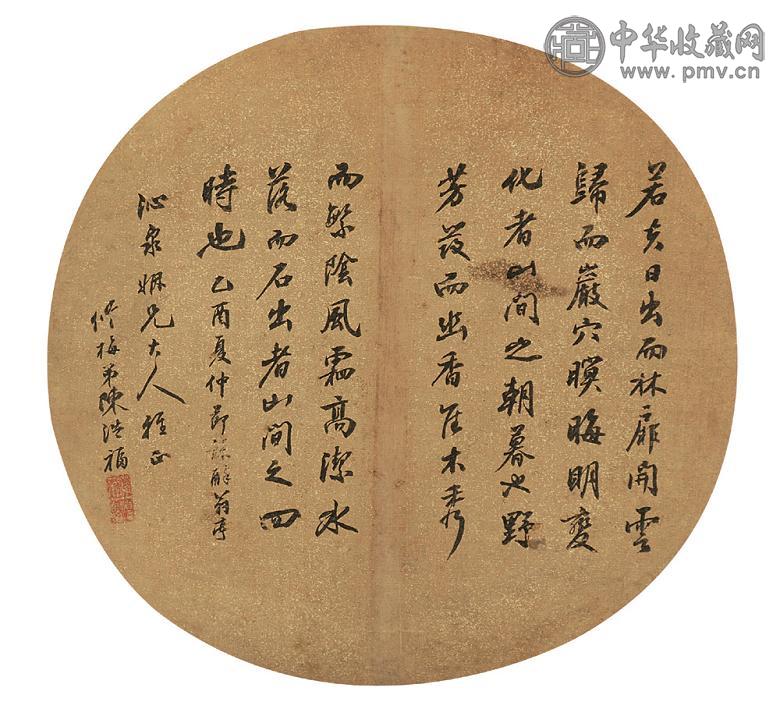 若夫日出而林扉開雲
歸而巖穴暝晦明變
化者山間之朝暮也野
芳發而幽香佳木秀
而繁陰風霜高潔水
落而石出者山間之四
時也 乙酉夏仲節錄醉翁亭
沁泉姻兄大人雅正
修梅弟陳浩福
中华收藏网
www.pmv.cn